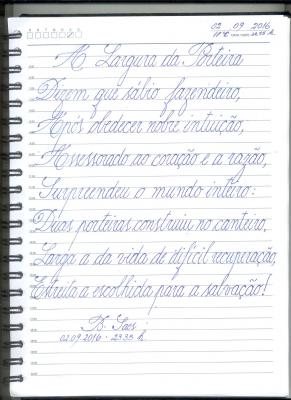 02 09 2016
A Largura da Porteira
Dizem que sábio fazendeiro,
Após obedecer nobre intuição,
Assessorado ao coração e a razão,
Surpreendeu o mundo inteiro:
Duas porteiras construiu no canteiro.
Larga a da vida de difícil recuperação,
Estrita a escolhida para a salvação!
B. Saes
02.09.2016 - 23:35 h